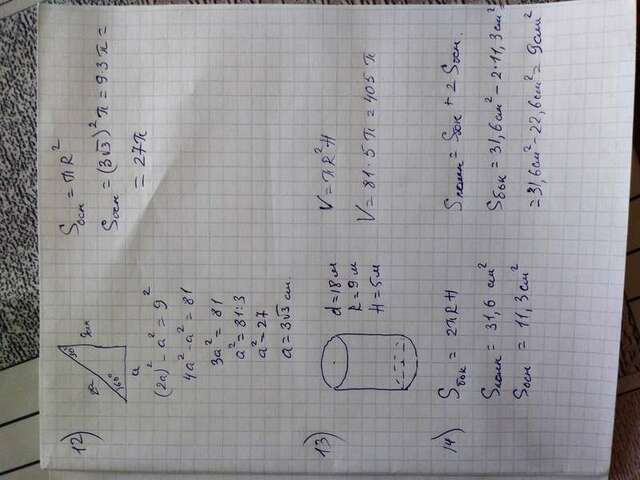 12)
30°
2a
9см
60°
a
(2a)² - a² = 9²
4a² - a² = 81
3a² = 81
a² = 81:3
a² = 27
a = 3√3 см.
Sосн = πR²
Sосн = (3√3)²π = 9·3π =
= 27π
13)
d = 18 м
R = 9 м
H = 5 м
V = πR²H
V = 81·5π = 405π
14)
Sбок = 2πRH
Sполн = 31,6 см²
Sосн = 11,3 см²
Sполн = Sбок + 2Sосн.
Sбок = 31,6 см² - 2·11,3 см² =
= 31,6 см² - 22,6 см² = 9 см²